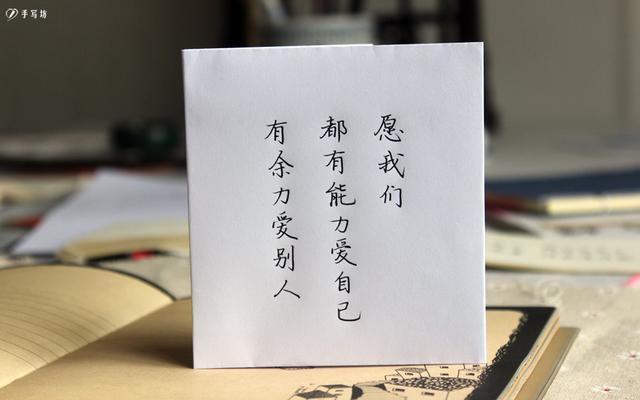 手写坊
愿我们
都有能力爱自己
有余力爱别人